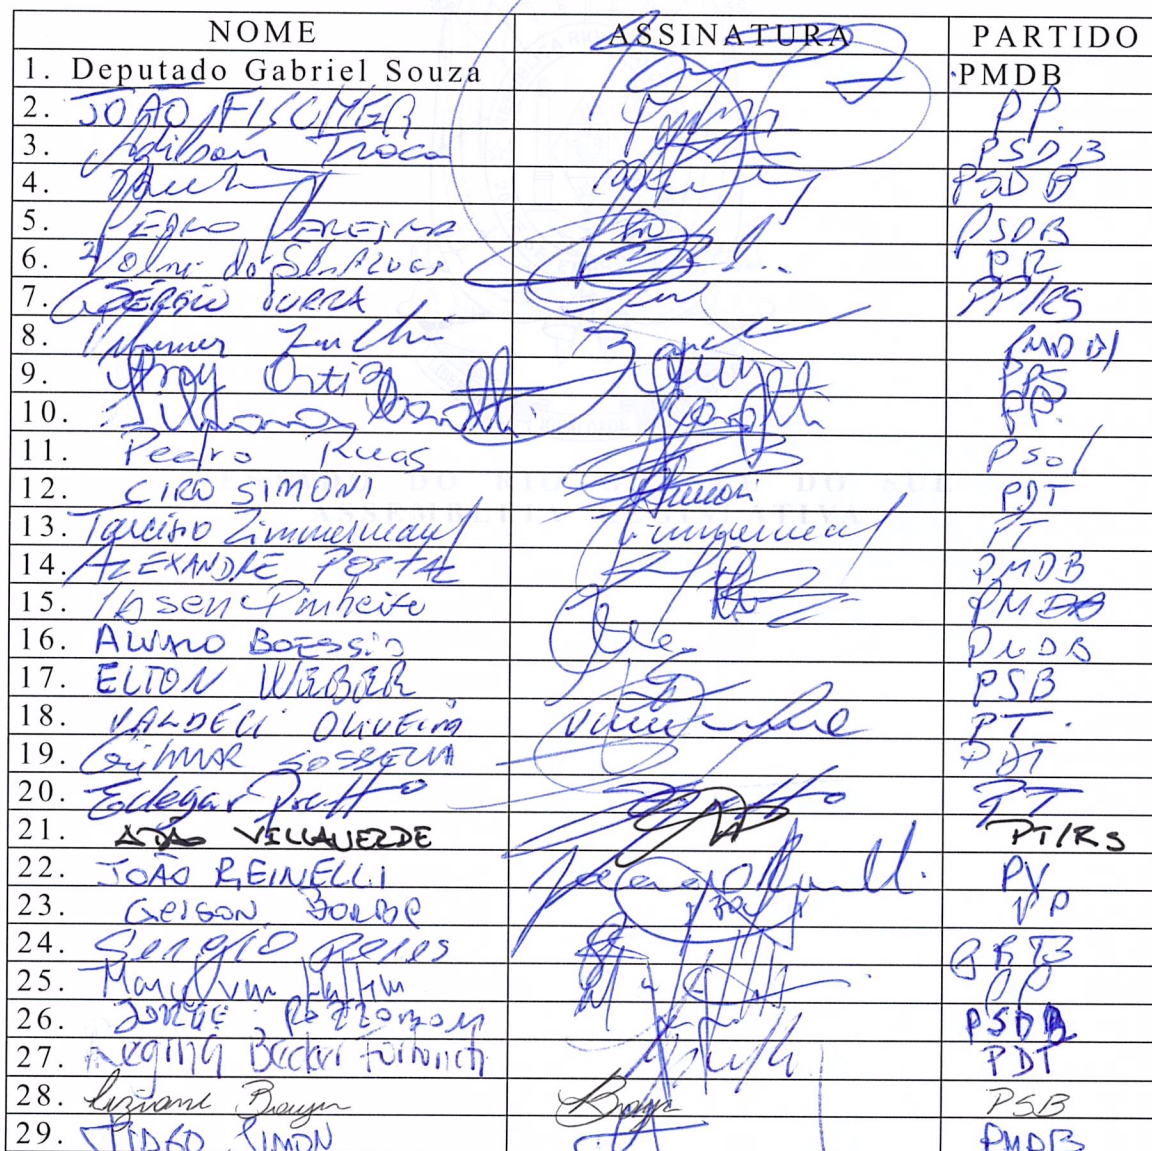 NOME ASSINATURA PARTIDO
1. Deputado Gabriel Souza PMDB
2. JOÃO FISCHER PP.
3. Adilson Troca PSDB
4. PSDB
5. PEDRO PEREIRA PSDB
6. PR
7. SÉRGIO TURRA PP/RS
8. Vilmar Zanchin PMDB
9. Any Ortiz PPS
10. Silvana Covatti PP.
11. Pedro Ruas Psol
12. CIRO SIMONI PDT
13. Tarcísio Zimmermann PT
14. ALEXANDRE POSTAL PMDB
15. Ibsen Pinheiro PMDB
16. ALVARO BOESSIO PMDB
17. ELTON WEBER PSB
18. VALDECI OLIVEIRA PT.
19. GILMAR SOSSELLA PDT
20. Edegar Pretto PT
21. ADÃO VILLAVERDE PT/RS
22. JOÃO REINELLI PV
23. GERSON BORBA PP
24. Sergio Peres PRB
25. PP
26. JORGE POZZOBOM PSDB
27. Regina Becker Fortunati PDT
28. Liziane Bayer Bayer PSB
29. TIAGO SIMON PMDB